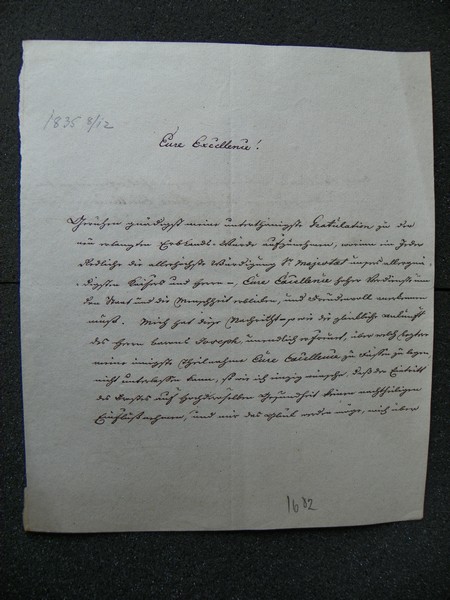 1835 8/12
Eure Excellenz!
Geruhen gnädigst meine unterthänigste Gratulation zu der
neu erlangten Erblands-Würde aufzunehmen, worinn ein Jeder
Redliche die allerhöchste Würdigung Sr Majestät unsers allergnä-
digsten Kaisers und Herrn, Eure Excellenz hoher Verdienste um
den Staat und die Menschheit erblicken, und freudevoll verehren
muß. Mich hat diese Nachricht, so wie die glückliche Ankunft
des Herrn Barons Joseph unendlich erfreuet, über welch letztere
meine innigste Theilnahme Eure Excellenz zu Füssen zu legen,
nicht unterlassen kann, so wie ich innig wünsche, daß der Eintritt
des auf Hochderoselben Gesundheit keinen nachtheiligen
Einfluß nehmen, und mir das Glück werden möge, mich über
1682